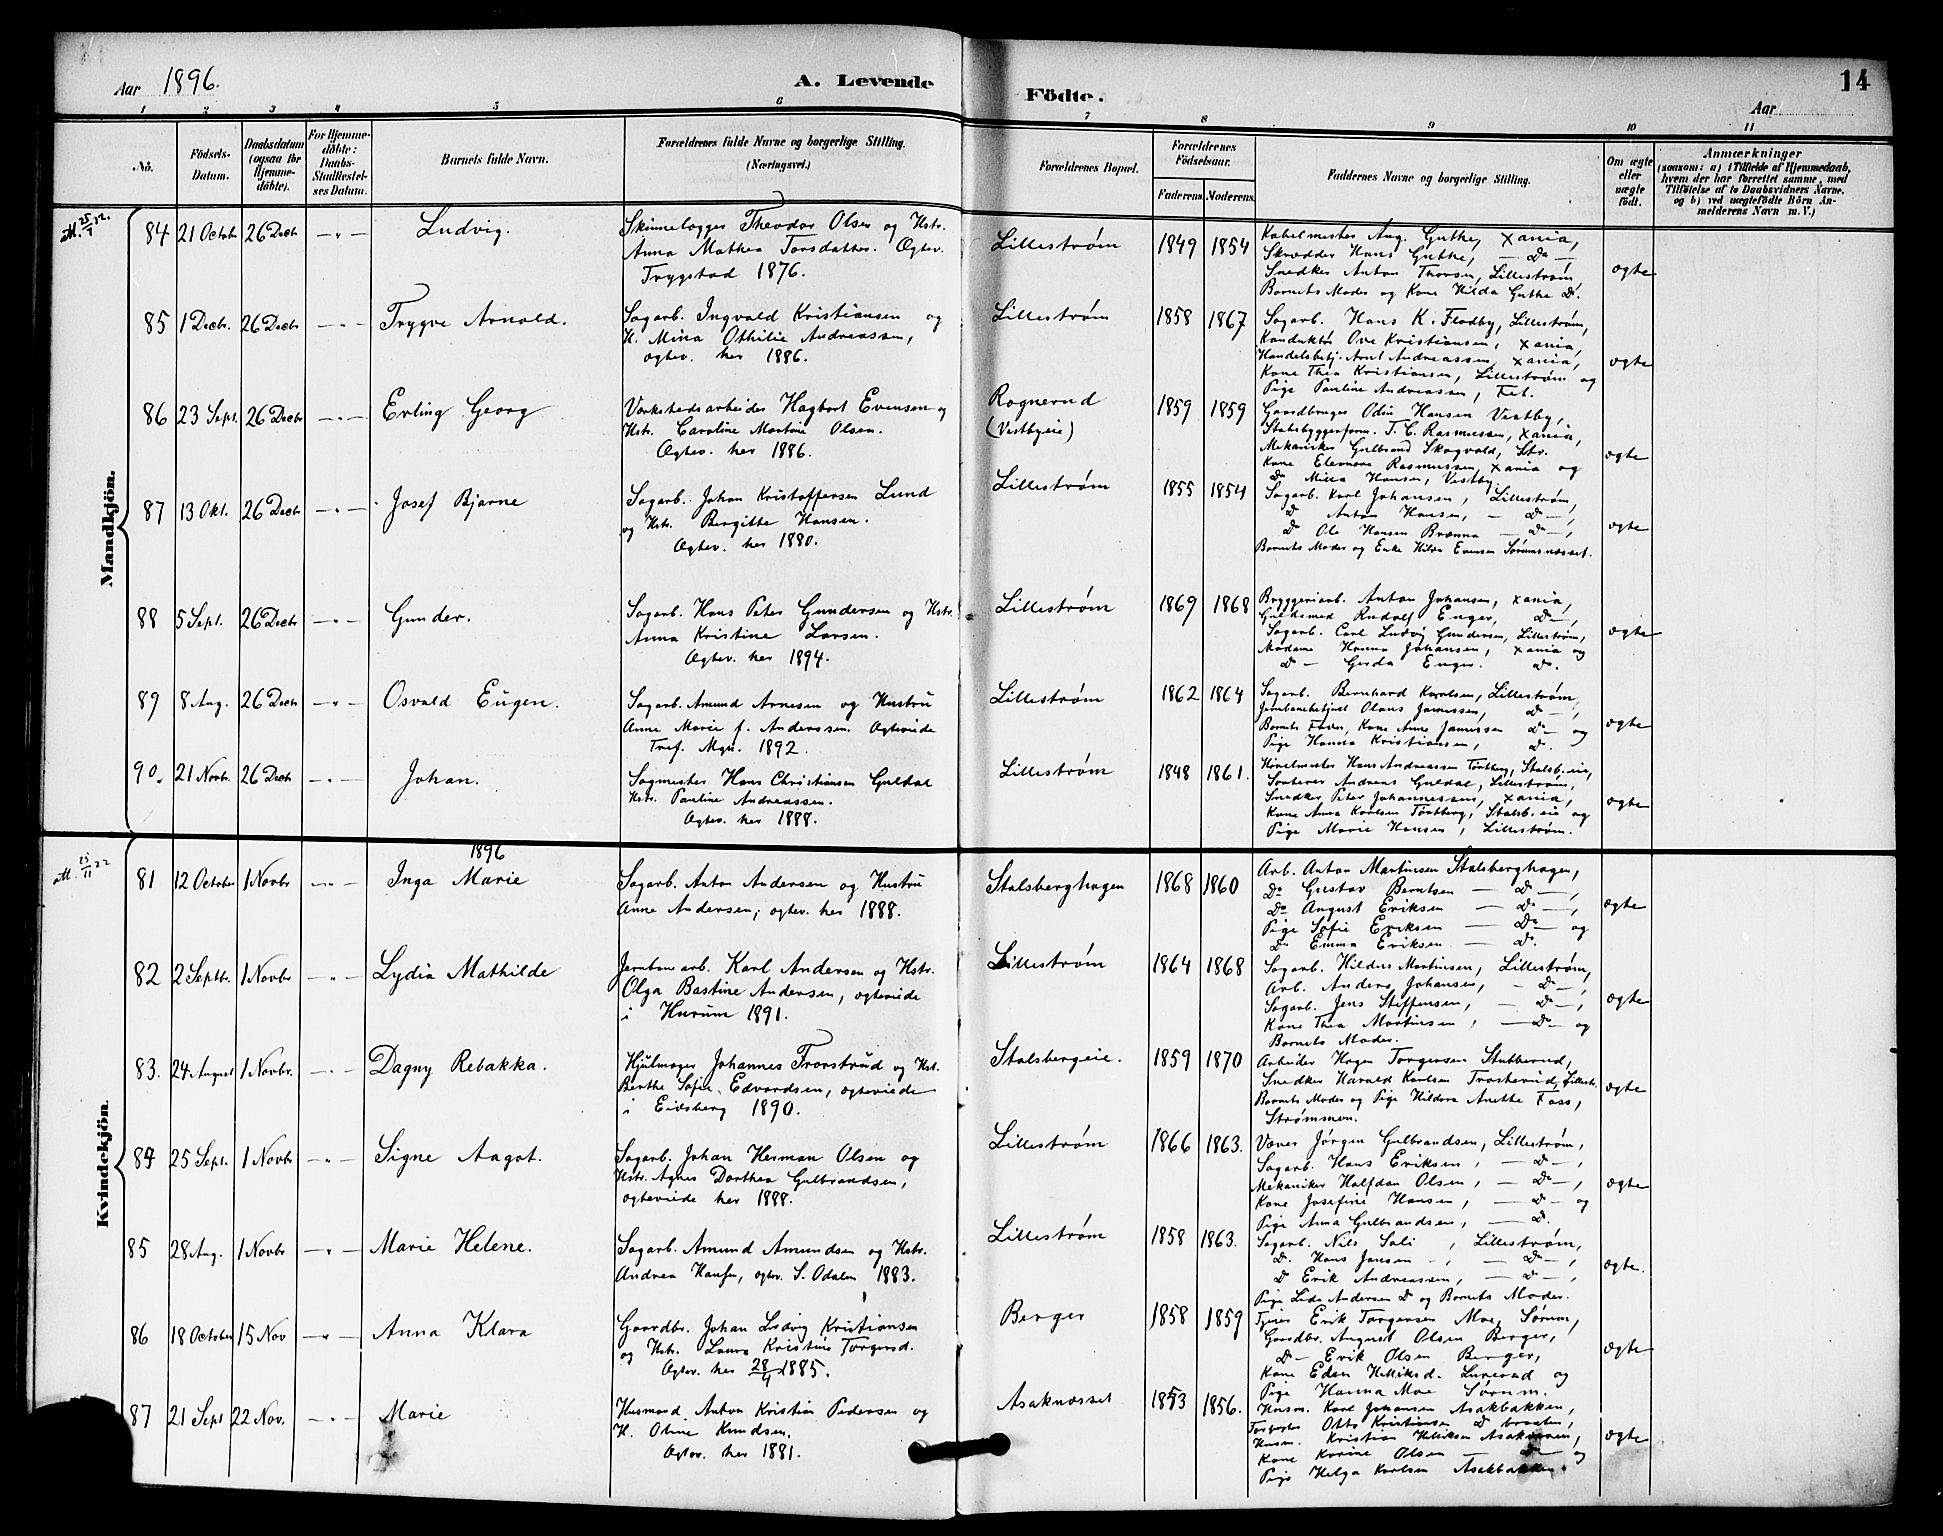 Aar 1896.
A. Levende
Födte.
14
Aar
1 2 3 4 5 6 7 8 9 10 11
No.
Födsels-Datum.
Daabsdatum (ogsaa for Hjemmedöbte).
For Hjemmedöbte: Daabs-Stadfæstelses Datum.
Barnets fulde Navn.
Forældrenes fulde Navne og borgerlige Stilling. (Næringsvei.)
Forældrenes Bopæl.
Forældrenes Födselsaar.
Faderens Moderens
Faddernes Navne og borgerlige Stilling.
Om ægte eller uægte födt.
Anmærkninger
(saasom: a) i Tilfælde af Hjemmedaab, hvem der har forrettet samme, med Tilföielse af to Daabsvidners Navne, og b) ved uægtefödte Börn Anmelderens Navn m. V.)
Mandkjön.
84 21 Octobr 26 Decb — " — Ludvig.
Theodor Olsen og Hstr.
Anna Mathea Torsdatter. Ægtev.
Trygstad 1876.
Lillestrøm 1849 1854
Kabelmester Aug. Guthe, Xania,
Skrædder Hans Guthe, — Do —
Snedker Anton Thorsen, Lillestrøm,
Barnets Moder og Kone Hilda Guthe Do.
ægte
85 1 Decbr. 26 Decb — " — Trygve Arnold.
Sagarb. Ingvald Kristiansen og
H. Mina Othilie Andreassen,
ægtev. her 1886.
Lillestrøm 1858 1867
Sagarb. Hans K. Flodby, Lillestrøm,
Konduktør Ove Kristiansen, Xania,
Handelsbetj. Arnt Andreassen, Xania,
Kone Thea Kristiansen, Lillestrøm og
Pige Pauline Andreassen, Fet.
ægte
86 23 Sept. 26 Decb — " — Erling Georg
Værkstedsarbeider Hagbart Evensen og
Hstr. Caroline Martine Olsen.
Ægtev. her 1886.
Rognerud
(Vestbyeie)
1859 1859
Gaardbruger Odin Hansen Vestby,
T. C. Rasmussen, Xania,
Mekaniker Gulbrand Skogvold, Str.
Kone Eleonora Rasmussen, Xania og
Do Milla Hansen, Vestby.
ægte
87 13 Okt. 26 Decb — " — Josef Bjarne
Sagarb. Johan Kristoffersen Lund
og Hstr. Bergitte Hansen.
Ægtev. her 1880.
Lillestrøm 1855 1854
Sagarb. Karl Johansen, Lillestrøm,
Do Anton Hansen, — Do —,
Do Ole Hansen Brænna — Do —,
Barnets Moder og Enke Hilda Evensen Sørumsnæsset.
ægte
88 5 Sept. 26 Decb — " — Gunder.
Sagarb. Hans Peter Gundersen og Hstr.
Anna Kristine Larsen.
Ægtev. her 1894.
Lillestrøm 1869 1868
Bryggeriarb. Anton Johansen, Xania,
Guldsmed Rudolf Enger, Do —,
Sagarb. Carl Ludvig Gundersen, Lillestrøm,
Madame Hanna Johansen, Xania og
Do — Gerda Enger. Do.
ægte
89 8 Aug. 26 Decb — " — Osvald Eugen.
Sagarb. Amund Arnesen og Hustru
Anne Marie f. Anderssen. Ægteviede
Tref. Mgh. 1892.
Lillestrøm 1862 1864
Sagarb. Bernhard Karlsen, Lillestrøm,
Jernbanebetjent Olaus Jamissen, Do —,
Barnets Fader, Kone Anne Jamissen Do — og
Pige Hanna Kristiansen, Do.
ægte
90. 21 Novbr. 26 Decb — " — Johan.
Sagmester Hans Christiansen Guldal
Hstr. Pauline Andreassen.
Ægtev. her 1888.
Lillestrøm 1848 1861.
Høvelmester Hans Andreassen Tortberg, Stalsb.eie,
Sorterer Andreas Guldal, Lillestrøm,
Snedker Peter Johannessen, Xania,
Kone Anna Karlsen Tortberg, Stalsb.eie og
Pige Marie Hansen, Lillestrøm.
ægte
Kvindekjön.
1896
81 12 October 1 Novbr — " — Inga Marie
Sagarb. Anton Andersen og Hustru
Anne Andersen, ægtev. her 1888.
Stalsberghagen 1868 1860
Arb. Anton Martinsen Stalsberghagen,
Do Gustav Berntsen — Do —,
Do August Eriksen — Do —,
Pige Sofie Eriksen — Do — og
Do Emma Eriksen — Do.
ægte
82 2 Septbr. 1 Novbr — " — Lydia Mathilde
Jernbanearb. Karl Andersen og Hstr.
Olga Bastine Andersen, ægteviede
i Hurum 1891.
Lillestrøm 1864 1868
Sagarb. Hildus Martinsen, Lillestrøm,
Arb. Anders Johansen, — Do —,
Sagarb. Jens Steffensen, — Do —,
Kone Thea Martinsen, — Do — og
Barnets Moder.
ægte
83. 24 August 1 Novbr. — " — Dagny Rebakka.
Hjulmager Johannes Trorstrud og Hst.
Berthe Sofie Edvardsen, ægteviede
i Eidsberg 1890.
Stalsbergeie. 1859 1870
Arbeider Hagen Torgersen Stubberud,
Snedker Harald Karlsen Trosterud, Lillestr.
Barnets Moder og Pige Hildora Anette Foss,
Strømmen.
ægte
84 25 Sept. 1 Novbr — " — Signe Aagot.
Sagarb. Johan Herman Olsen og
Hstr. Agnes Dorthea Gulbrandsen,
ægteviede her 1888.
Lillestrøm 1866 1863.
Væver Jørgen Gulbrandsen, Lillestrøm,
Sagarb. Hans Eriksen, — Do —,
Mekaniker Halfdan Olsen, — Do —,
Kone Josefine Hansen, — Do — og
Pige Anna Gulbrandsen, — Do.
ægte
85 28 Aug. 1 Novbr — " — Marie Helene.
Sagarb. Amund Amundsen og Hstr.
Andrea Hansen, ægtev. S. Odalen 1883.
Lillestrøm 1858 1863.
Sagarb. Nils Sali, Lillestrøm,
Do. Hans Jansen —, — Do —,
Do Erik Andreassen, — Do —,
Pige Lida Andersen Do og Barnets Moder.
ægte.
86 18 October 15 Nov — " — Anna Klara
Gaardbr. Johan Ludvig Kristiansen
og Hstr. Laura Kristine Torgersd.
Ægtev. her 1885.
Berger 1858 1859
Erik Torgersen Moe, Sørum,
Gaardbr. August Olsen Berger,
Do — Erik Olsen Berger,
Kone Eden Helliksd. Lunerud og
Pige Hanna Moe Sørum.
ægte
87 21 Sept 22 Nov. — " — Marie
Husmand Anton Kristian Pedersen og
H. Oline Knudsen.
Ægtev. her 1881.
Asaknæsset 1853 1856.
Husm. Karl Johansen Asakbakken,
Otto Kristiansen Do braaten,
Husm. Kristian Helliksen Asakbraaten,
Kone Karine Olsen — Do — og
Pige Helga Karlsen Asakbakken.
ægte